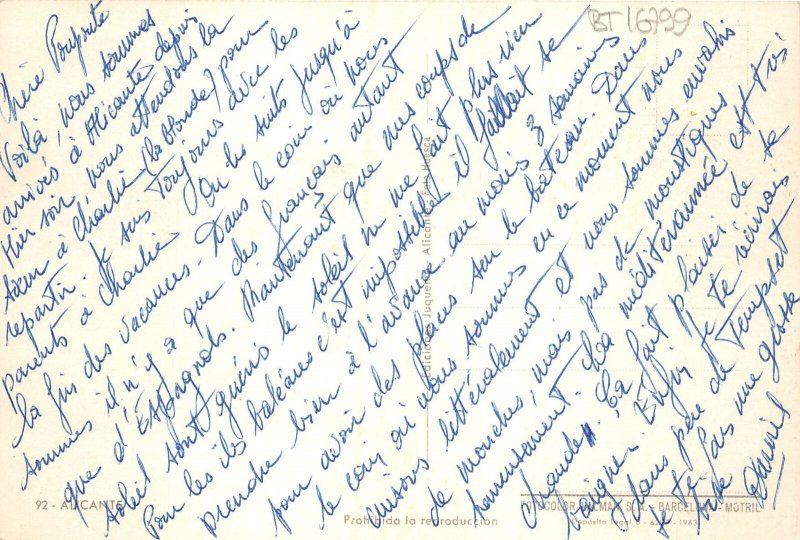 BT 16799
Chère Poupette
Voilà, nous sommes
arrivés à Alicante depuis
Hier soir, nous attendons la
sœur à Charlie (la blonde) pour
repartir. Je suis toujours avec les
parents à Charlie. On les suit jusqu'à
la fin des vacances. Dans le coin où nous
sommes il n'y a que des français autant
que d'Espagnols. Maintenant que mes coups de
soleil sont guéris le soleil ne me fait plus rien
Pour les îles baléares c'est impossible, il fallait se
prendre bien à l'avance au moins 3 semaines
pour avoir des places sur le bateau. Dans
le coin où nous sommes en ce moment nous
cuisons littéralement et nous sommes envahis
de mouches, mais pas de moustiques
heureusement. La méditerannée est très
chaude. Ça fait plaisir de se
baigner. Enfin je te verrais
dans peu de temps et
je te fais une grosse
bise
92 - ALICANTE
Ediciones Juquera - Alicante - Foto Huesca
Prohibida la reproducción
FOTOCOLOR DALMAU S. A. - BARCELONA - MOTRIL
Depósito legal B - 1963